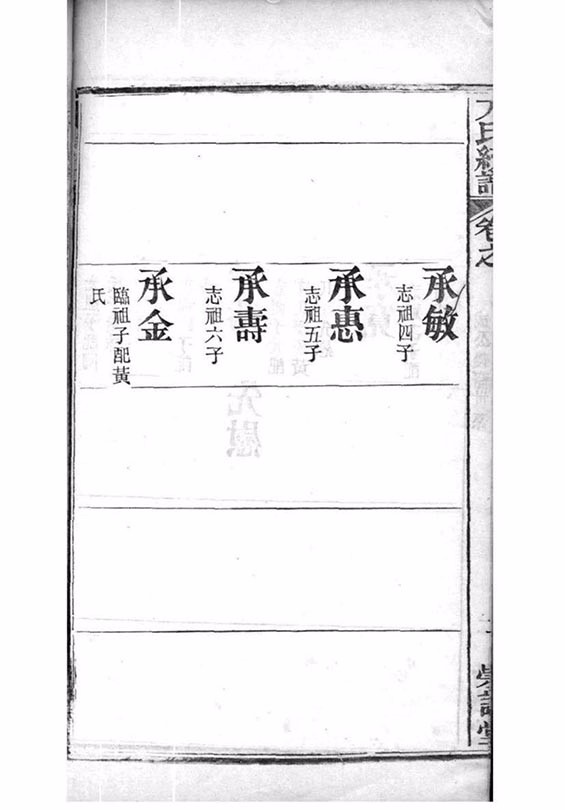 氏統譜
卷之
承敏
志祖四子
承惠
志祖五子
承壽
志祖六子
承金
臨祖子配黃
氏